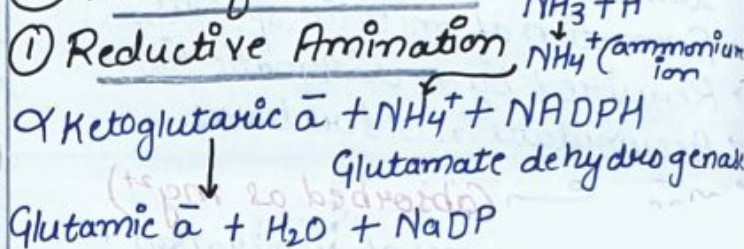 NH3 + H
① Reductive Amination
NH4+ (ammonium ion
α Ketoglutaric ā + NH4+ + NADPH
Glutamate dehydrogenas
Glutamic ā + H2O + NaDP